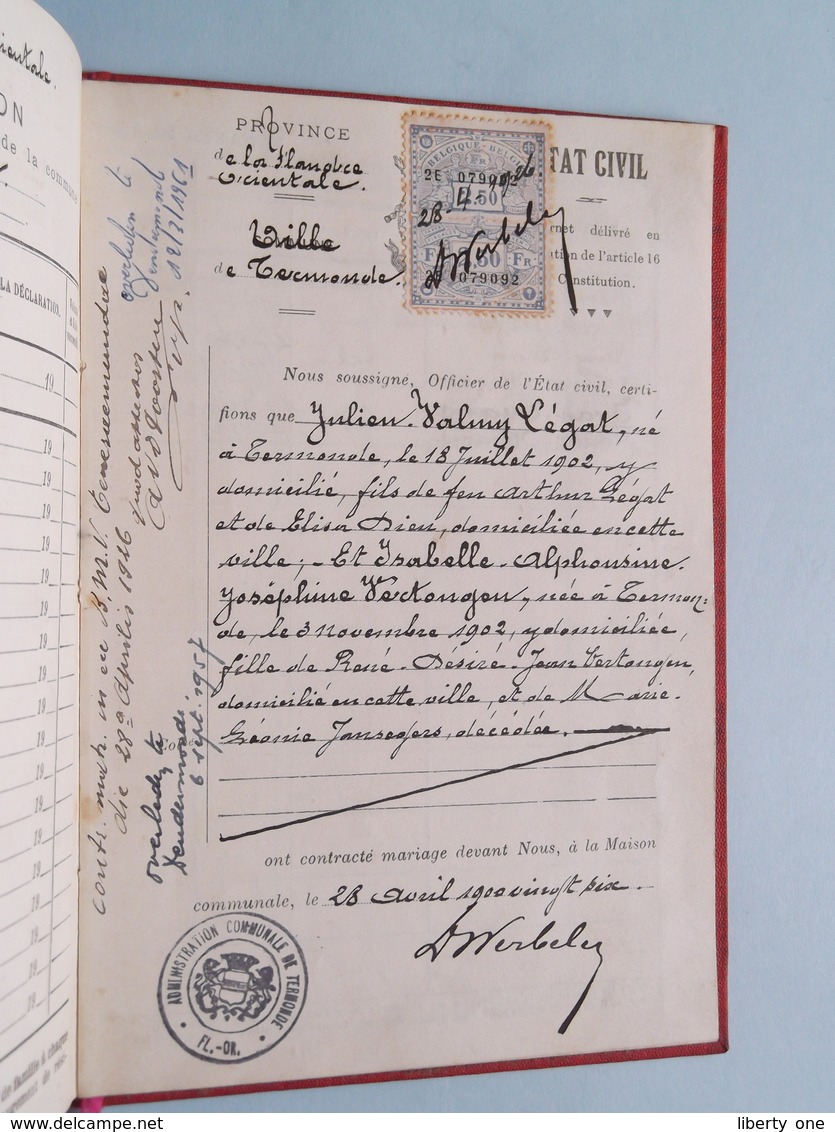 PROVINCE
de la Flandre
Orientale.
Ville
de Termonde.
BELGIQUE-BELG
FR
2E 079092
1.50
28-4-1926
DWerbeley
50 FR.
2E 079092
TAT CIVIL
net délivré en
tion de l'article 16
Constitution.
Nous soussigné, Officier de l'État civil, certi-
fions que Julien-Valmy Légat, né
à Termonde, le 18 Juillet 1902, y
domicilié, fils de feu Arthur Légat
et de Elisa Dieu, domiciliée en cette
ville; - Et Isabelle-Alphonsine-
Joséphine Vertongen, née à Termon-
de, le 3 novembre 1902, y domiciliée,
fille de René-Désiré-Jean Vertongen,
domicilié en cette ville, et de Marie-
Léonie Janssegers, décédée.
ont contracté mariage devant Nous, à la Maison
communale, le 28 avril 1900 vingt six.
DWerbeley
ADMINISTRATION COMMUNALE DE TERMONDE
FL.-OR.
contr. matr. in eccl. B.M.V. Teneraemundae
die 28a Aprilis 1926
quod attestor
overleden te
Dendermonde
12/3/1961
overleden te
Dendermonde
6 sept. 1957
ientale.
ON
de la commune
LA DÉCLARATION.
19
19
19
19
19
19
19
19
19
19
19
19
19
19
de famille à chaque